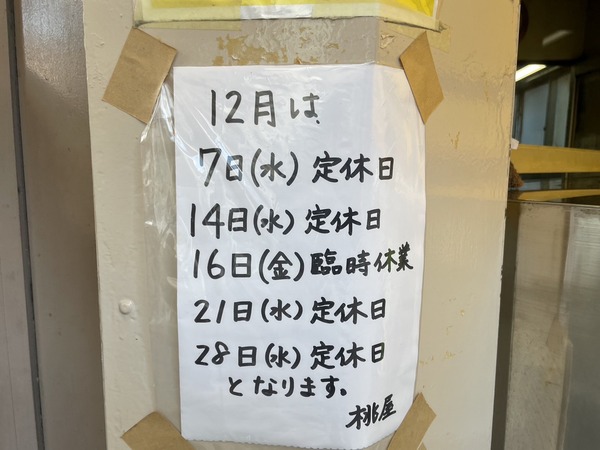 12月は、
7日(水) 定休日
14日(水) 定休日
16日(金) 臨時休業
21日(水) 定休日
28日(水) 定休日
となります。
桃屋